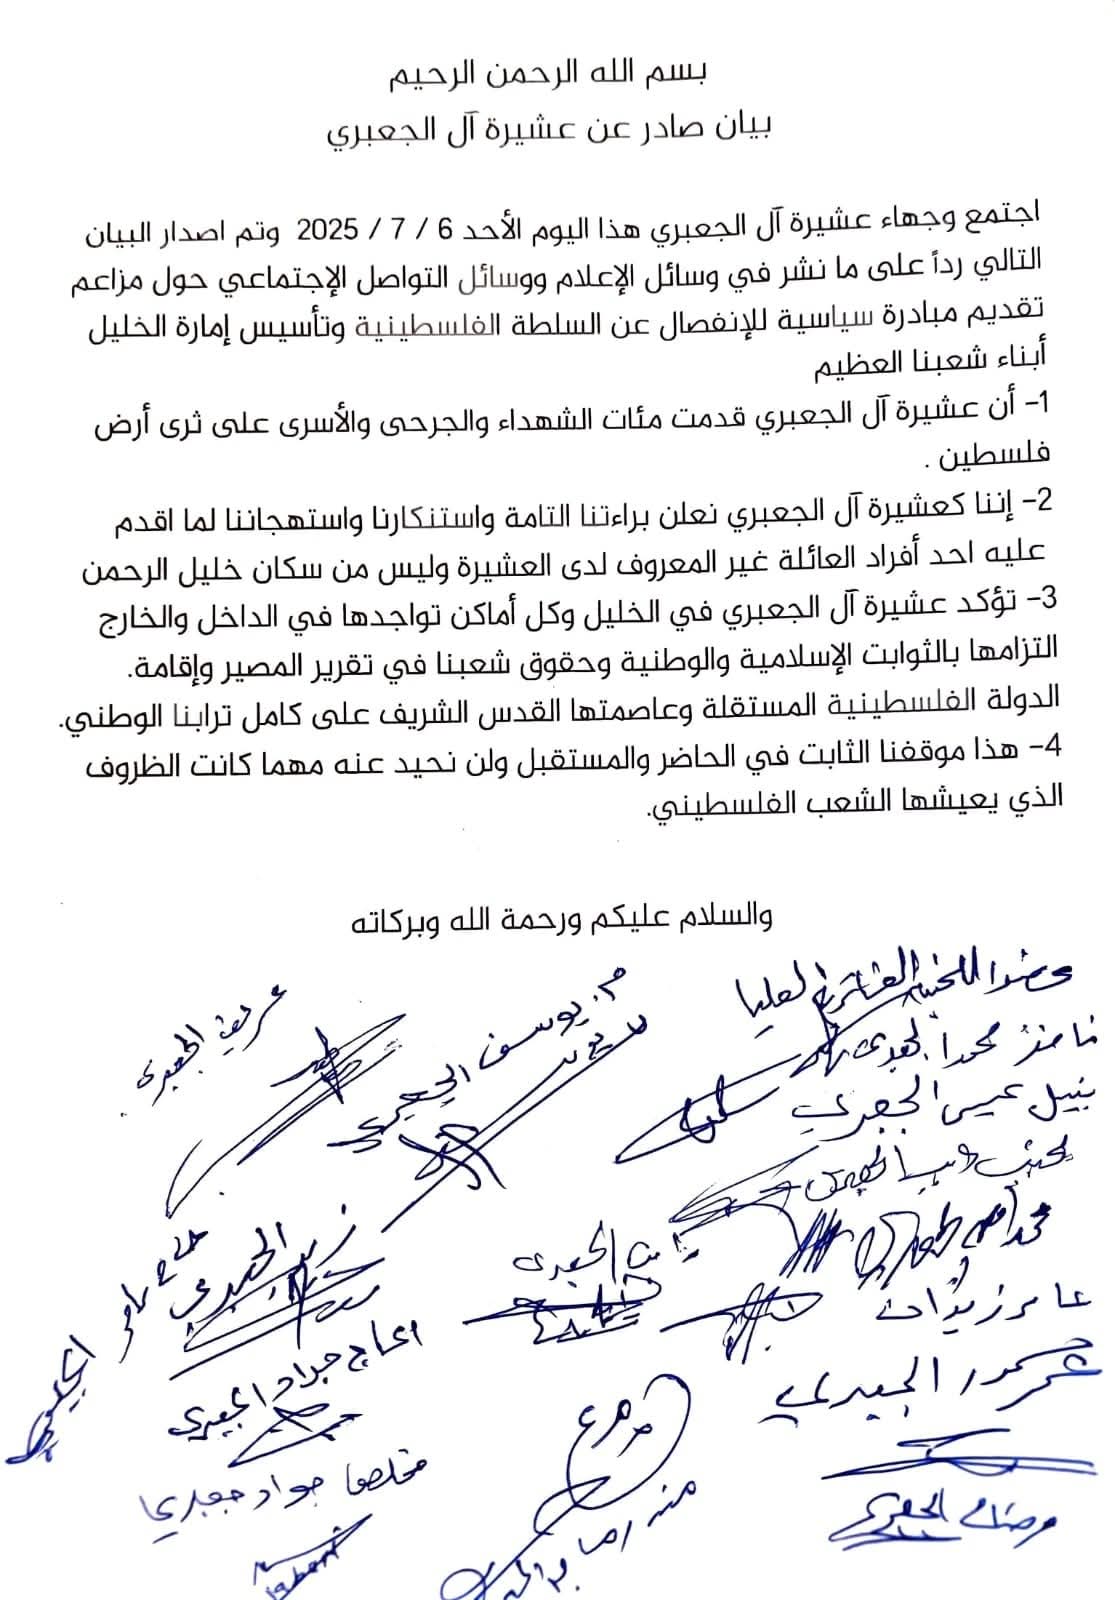 بسم الله الرحمن الرحيم
بيان صادر عن عشيرة آل الجعبري
اجتمع وجهاء عشيرة آل الجعبري هذا اليوم الأحد 6 / 7 / 2025 وتم اصدار البيان
التالي رداً على ما نشر في وسائل الإعلام ووسائل التواصل الإجتماعي حول مزاعم
تقديم مبادرة سياسية للإنفصال عن السلطة الفلسطينية وتأسيس إمارة الخليل
أبناء شعبنا العظيم
1- أن عشيرة آل الجعبري قدمت مئات الشهداء والجرحى والأسرى على ثرى أرض
فلسطين .
2- إننا كعشيرة آل الجعبري نعلن براءتنا التامة واستنكارنا واستهجاننا لما اقدم
عليه احد أفراد العائلة غير المعروف لدى العشيرة وليس من سكان خليل الرحمن
3- تؤكد عشيرة آل الجعبري في الخليل وكل أماكن تواجدها في الداخل والخارج
التزامها بالثوابت الإسلامية والوطنية وحقوق شعبنا في تقرير المصير وإقامة.
الدولة الفلسطينية المستقلة وعاصمتها القدس الشريف على كامل ترابنا الوطني.
4- هذا موقفنا الثابت في الحاضر والمستقبل ولن نحيد عنه مهما كانت الظروف
الذي يعيشها الشعب الفلسطيني.
والسلام عليكم ورحمة الله وبركاته
م. يوسف الجعبري
نبيل عيسى الجعبري
الجعبري
الحاج جواد الجعبري
جواد جعبري